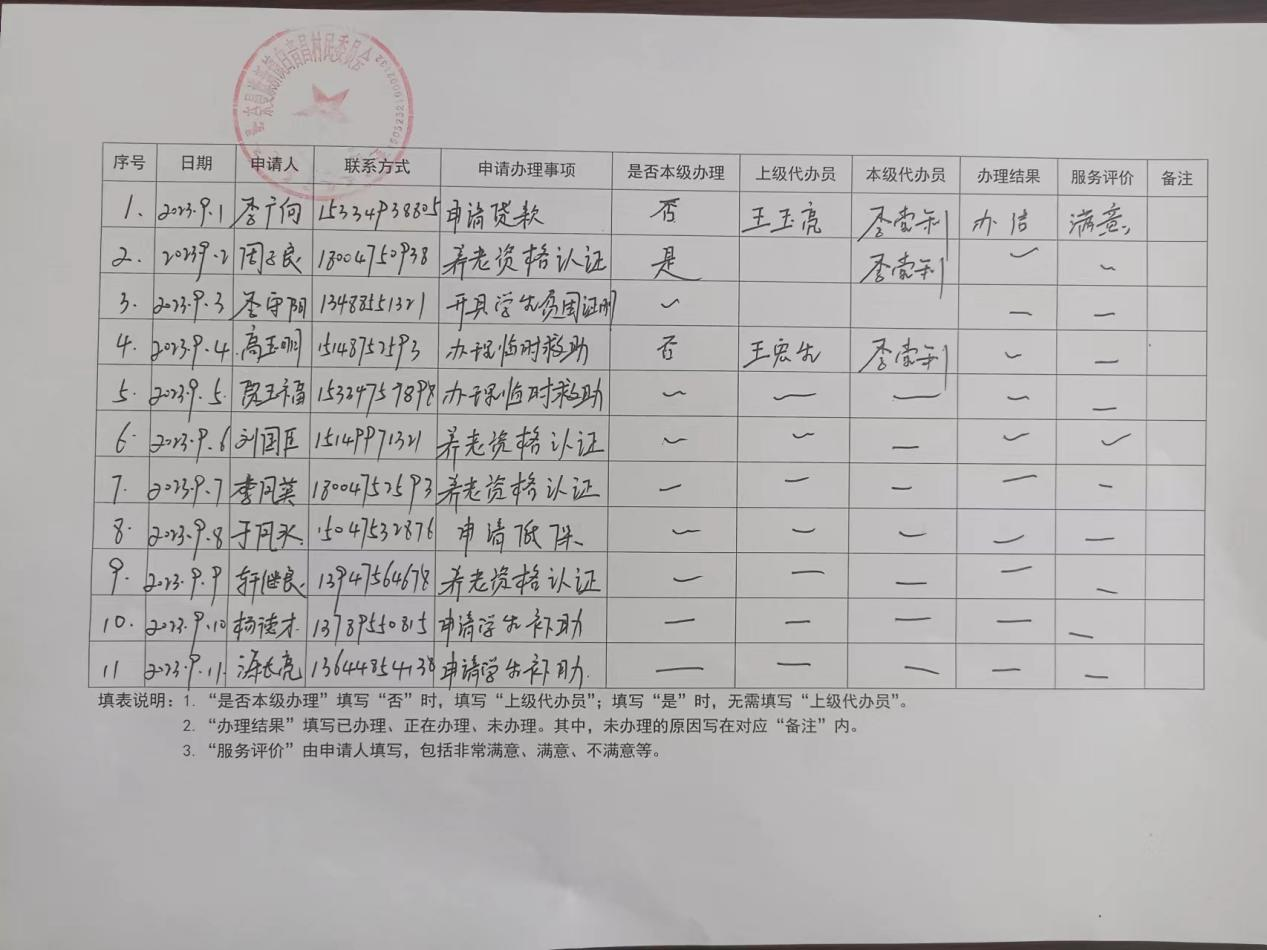 村民委员会
序号 日期 申请人 联系方式 申请办理事项 是否本级办理 上级代办员 本级代办员 办理结果 服务评价 备注
1. 2023.9.1 李广何 15334938805 申请贷款 否 王玉亮 李索利 办结 满意
2. 2023.9.2 周玉良 18004750938 养老资格认证 是 李索利
3. 2023.9.3 李守阳 13488551321 开具学生贫困证明
4. 2023.9.4 高玉明 15148752593 办理临时救助 否 王宏生 李索利
5. 2023.9.5 玉福 15334757898 办理临时救助
6 2023.9.6 刘国臣 15149971321 养老资格认证
7. 2023.9.7 李凤英 18004752593 养老资格认证
8. 2023.9.8 于凤 15047532876 申请低保
9. 2023.9.9 继良 13947564678 养老资格认证
10. 2023.9.10 杨德才 13789550815 申请学生补助
11 2023.9.11 长亮 13644854138 申请学生补助
填表说明：1. “是否本级办理”填写“否”时，填写“上级代办员”；填写“是”时，无需填写“上级代办员”。
2. “办理结果”填写已办理、正在办理、未办理。其中，未办理的原因写在对应“备注”内。
3. “服务评价”由申请人填写，包括非常满意、满意、不满意等。